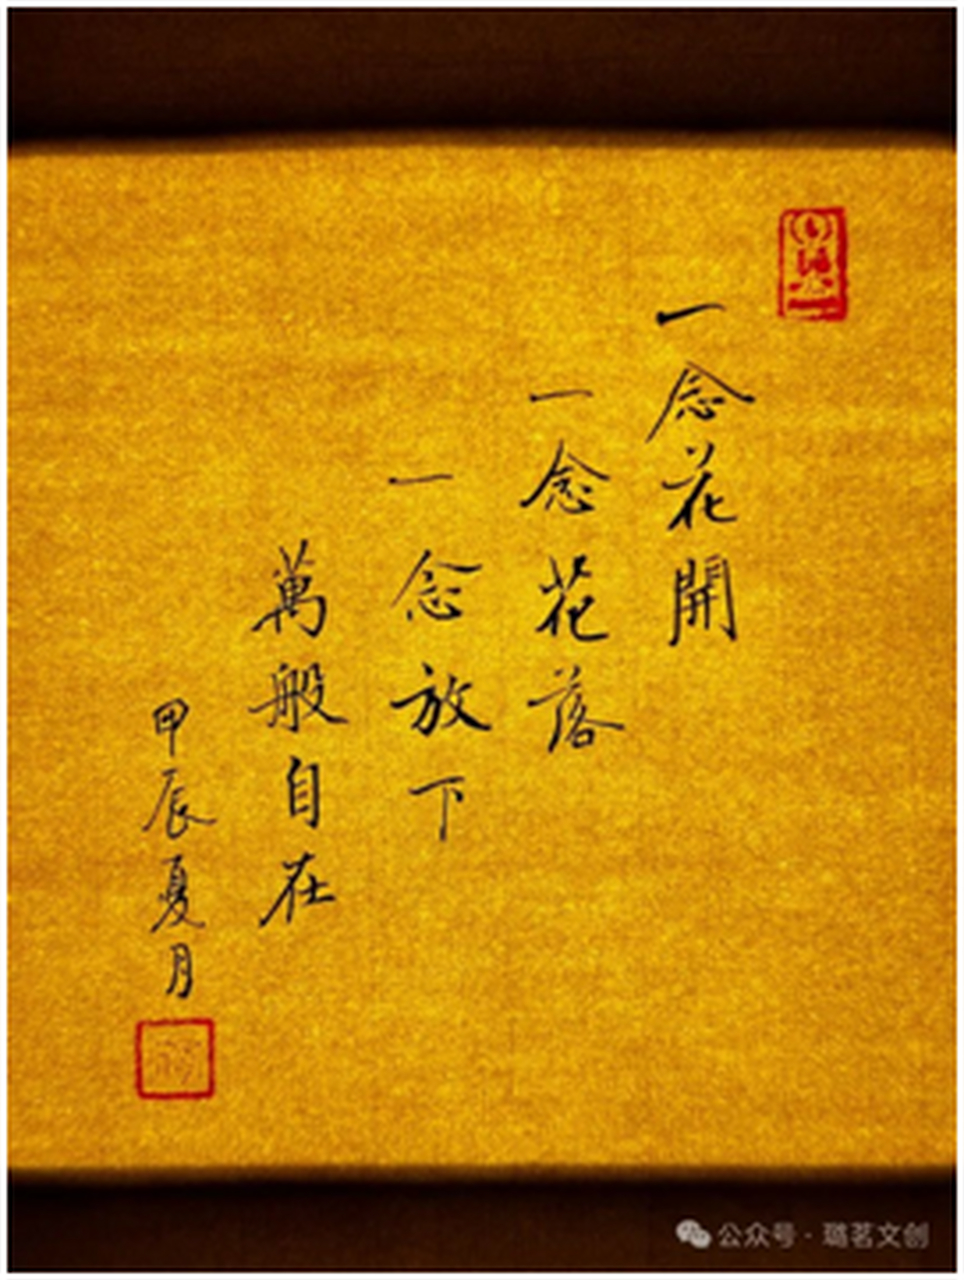 一念花開
一念花落
一念放下
萬般自在
甲辰夏月
公众号 · 璐茗文创